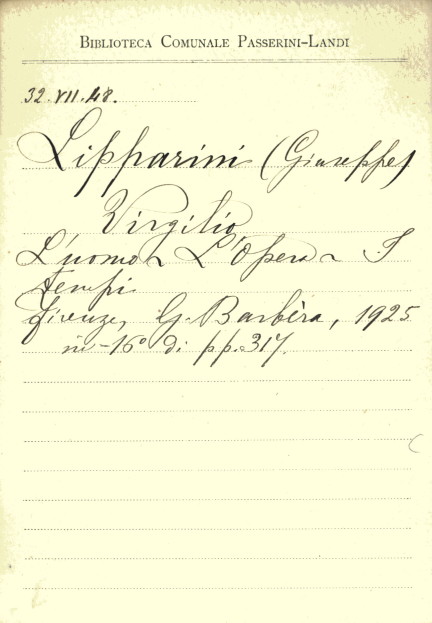 BIBLIOTECA COMUNALE PASSERINI-LANDI
32.VII.48.
Lipparini (Giuseppe)
Virgilio
L'uomo ~ L'Opera ~ I
tempi
Firenze, G. Barbèra, 1925
in-16° di pp. 317.